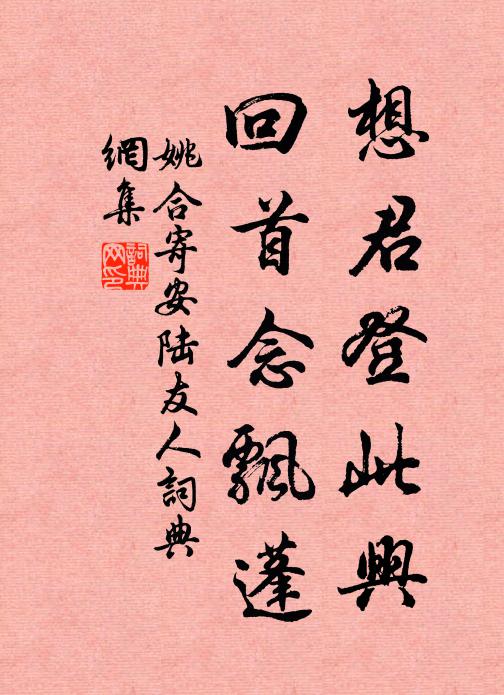 想君登此興
回首念飄蓬
姚合寄安陸友人詞典
網集
詞典網印